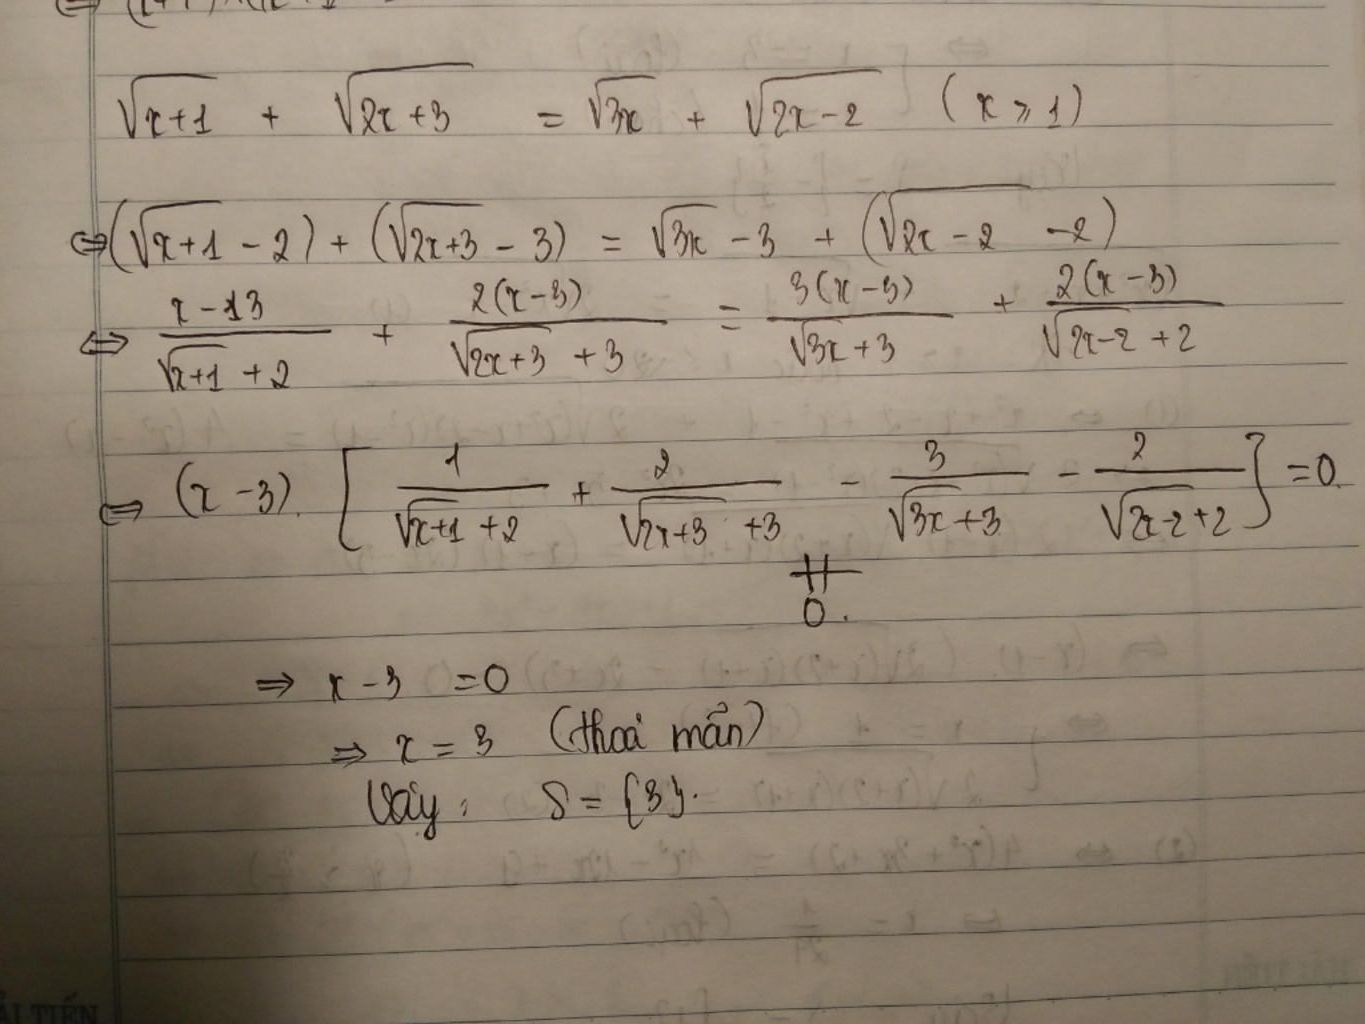 √(x+1) + √(2x+3) = √(3x) + √(2x-2) (x ⩾ 1)
⇔ (√(x+1) - 2) + (√(2x+3) - 3) = √(3x) - 3 + (√(2x-2) - 2)
⇔ (x-3)/(√(x+1) + 2) + 2(x-3)/(√(2x+3) + 3) = 3(x-3)/(√(3x) + 3) + 2(x-3)/(√(2x-2) + 2)
⇔ (x-3). [1/(√(x+1) + 2) + 2/(√(2x+3) + 3) - 3/(√(3x) + 3) - 2/(√(2x-2) + 2)] = 0.
≠
0.
⇒ x - 3 = 0
⇒ x = 3 (thoả mãn)
Vậy: S = {3}.
ẢI TIẾN